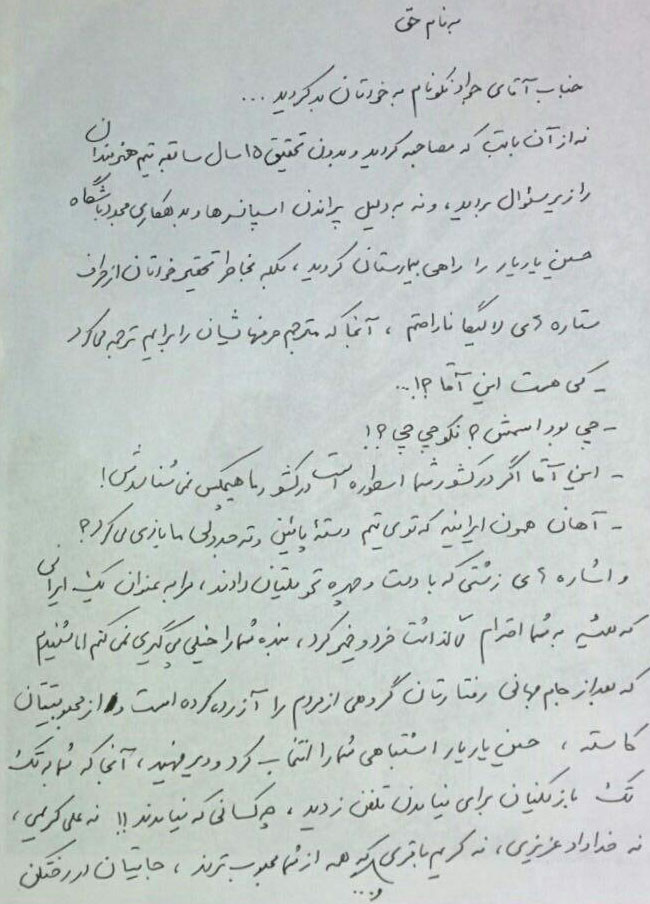 به نام حق
جناب آقای جواد نکونام به خودتان بد کردید ...
نه از آن بابت که مصاحبه کردید و بدون تحقیق ۱۵ سال سابقه تیم هنرمندان
را زیر سئوال بردید، و نه به دلیل پراندن اسپانسرها و بدهکاری مجدد باشگاه
حسن یاریار را راهی بیمارستان کردید، بلکه بخاطر تحقیر خودتان از طرف
ستاره های لالیگا ناراحتم، آنجا که مترجم حرفهاشان را برایم ترجمه می کرد
- کی هست این آقا؟!...
- چی بود اسمش؟ نکو چی چی؟!
- این آقا اگر در کشور شما اسطوره است در کشور ما هیچکس نمی شناسدش!
- آهان همون ایرانیه که توی تیم دستهٔ پائین و ته جدولی ما بازی می کرد؟
و اشاره های زشتی که با دست و چهره تحویلتان دادند، مرا به عنوان یک ایرانی
که همیشه به شما احترام گذاشت خرد و خمیر کرد، بنده شما را خیلی پیگیری نمی کنم اما شنیدم
که بعد از جام جهانی رفتارتان گروهی از مردم را آزرده کرده است و از محبوبیتتان
کاسته، حسن یاریار اشتباهی شما را انتخاب کرد و دیر فهمید، آنجا که شما به تک
تک بازیکنان برای نیامدن تلفن زدید، چه کسانی که نیامدند!! نه علی کریمی،
نه خداداد عزیزی، نه کریم باقری و... که همه از شما محبوب ترند، جایتان در رختکن